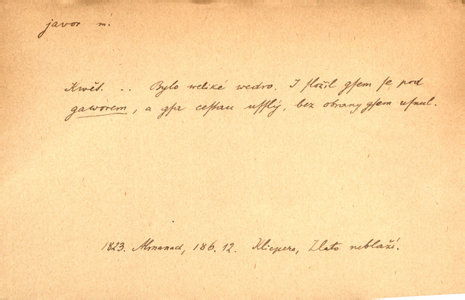 javor m.
Kwět. .. Bylo weliké wedro. I složil gsem se pod
gaworem, a gsa cestau ušlý, bez obrany gsem usnul.
1823. Almanach, 186. 12. Klicpera, Zlato neblaží.